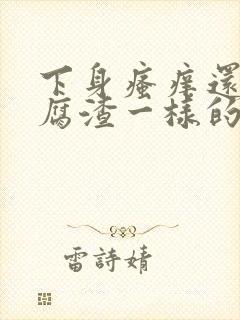 下身瘙癢還
腐渣一樣的
雷詩婧